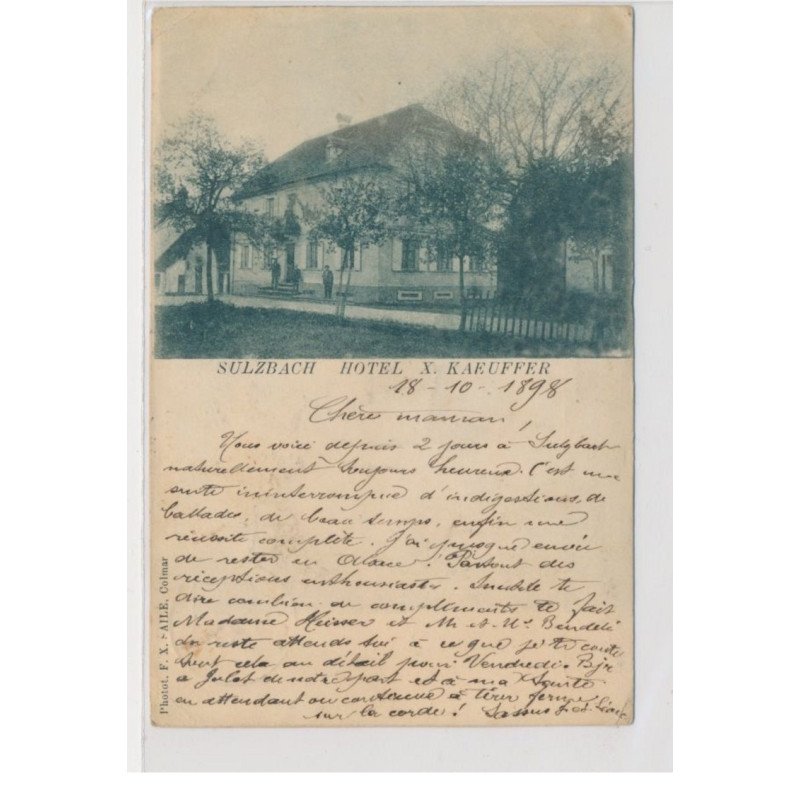 SULZBACH HOTEL X. KAEUFFER
18-10-1898
Chère maman!
Nous voici depuis 2 jours à Sulzbach
naturellement toujours heureux. C'est une
suite ininterrompue d'indigestions, de
ballades, de beau temps, enfin une
réussite complète. J'ai presque envie
de rester en Alsace. Partout des
réceptions enthousiastes. Inutile de te
dire combien de compliments te fait
Madame Heisser et Mr et Me
du reste attends toi à ce que je te conte
tout cela au détail pour Vendredi. Bjr
à Julot de notre part et à ma
en attendant on continue à tirer ferme
sur la corde!
Photot. F. X. SAILE, Colmar